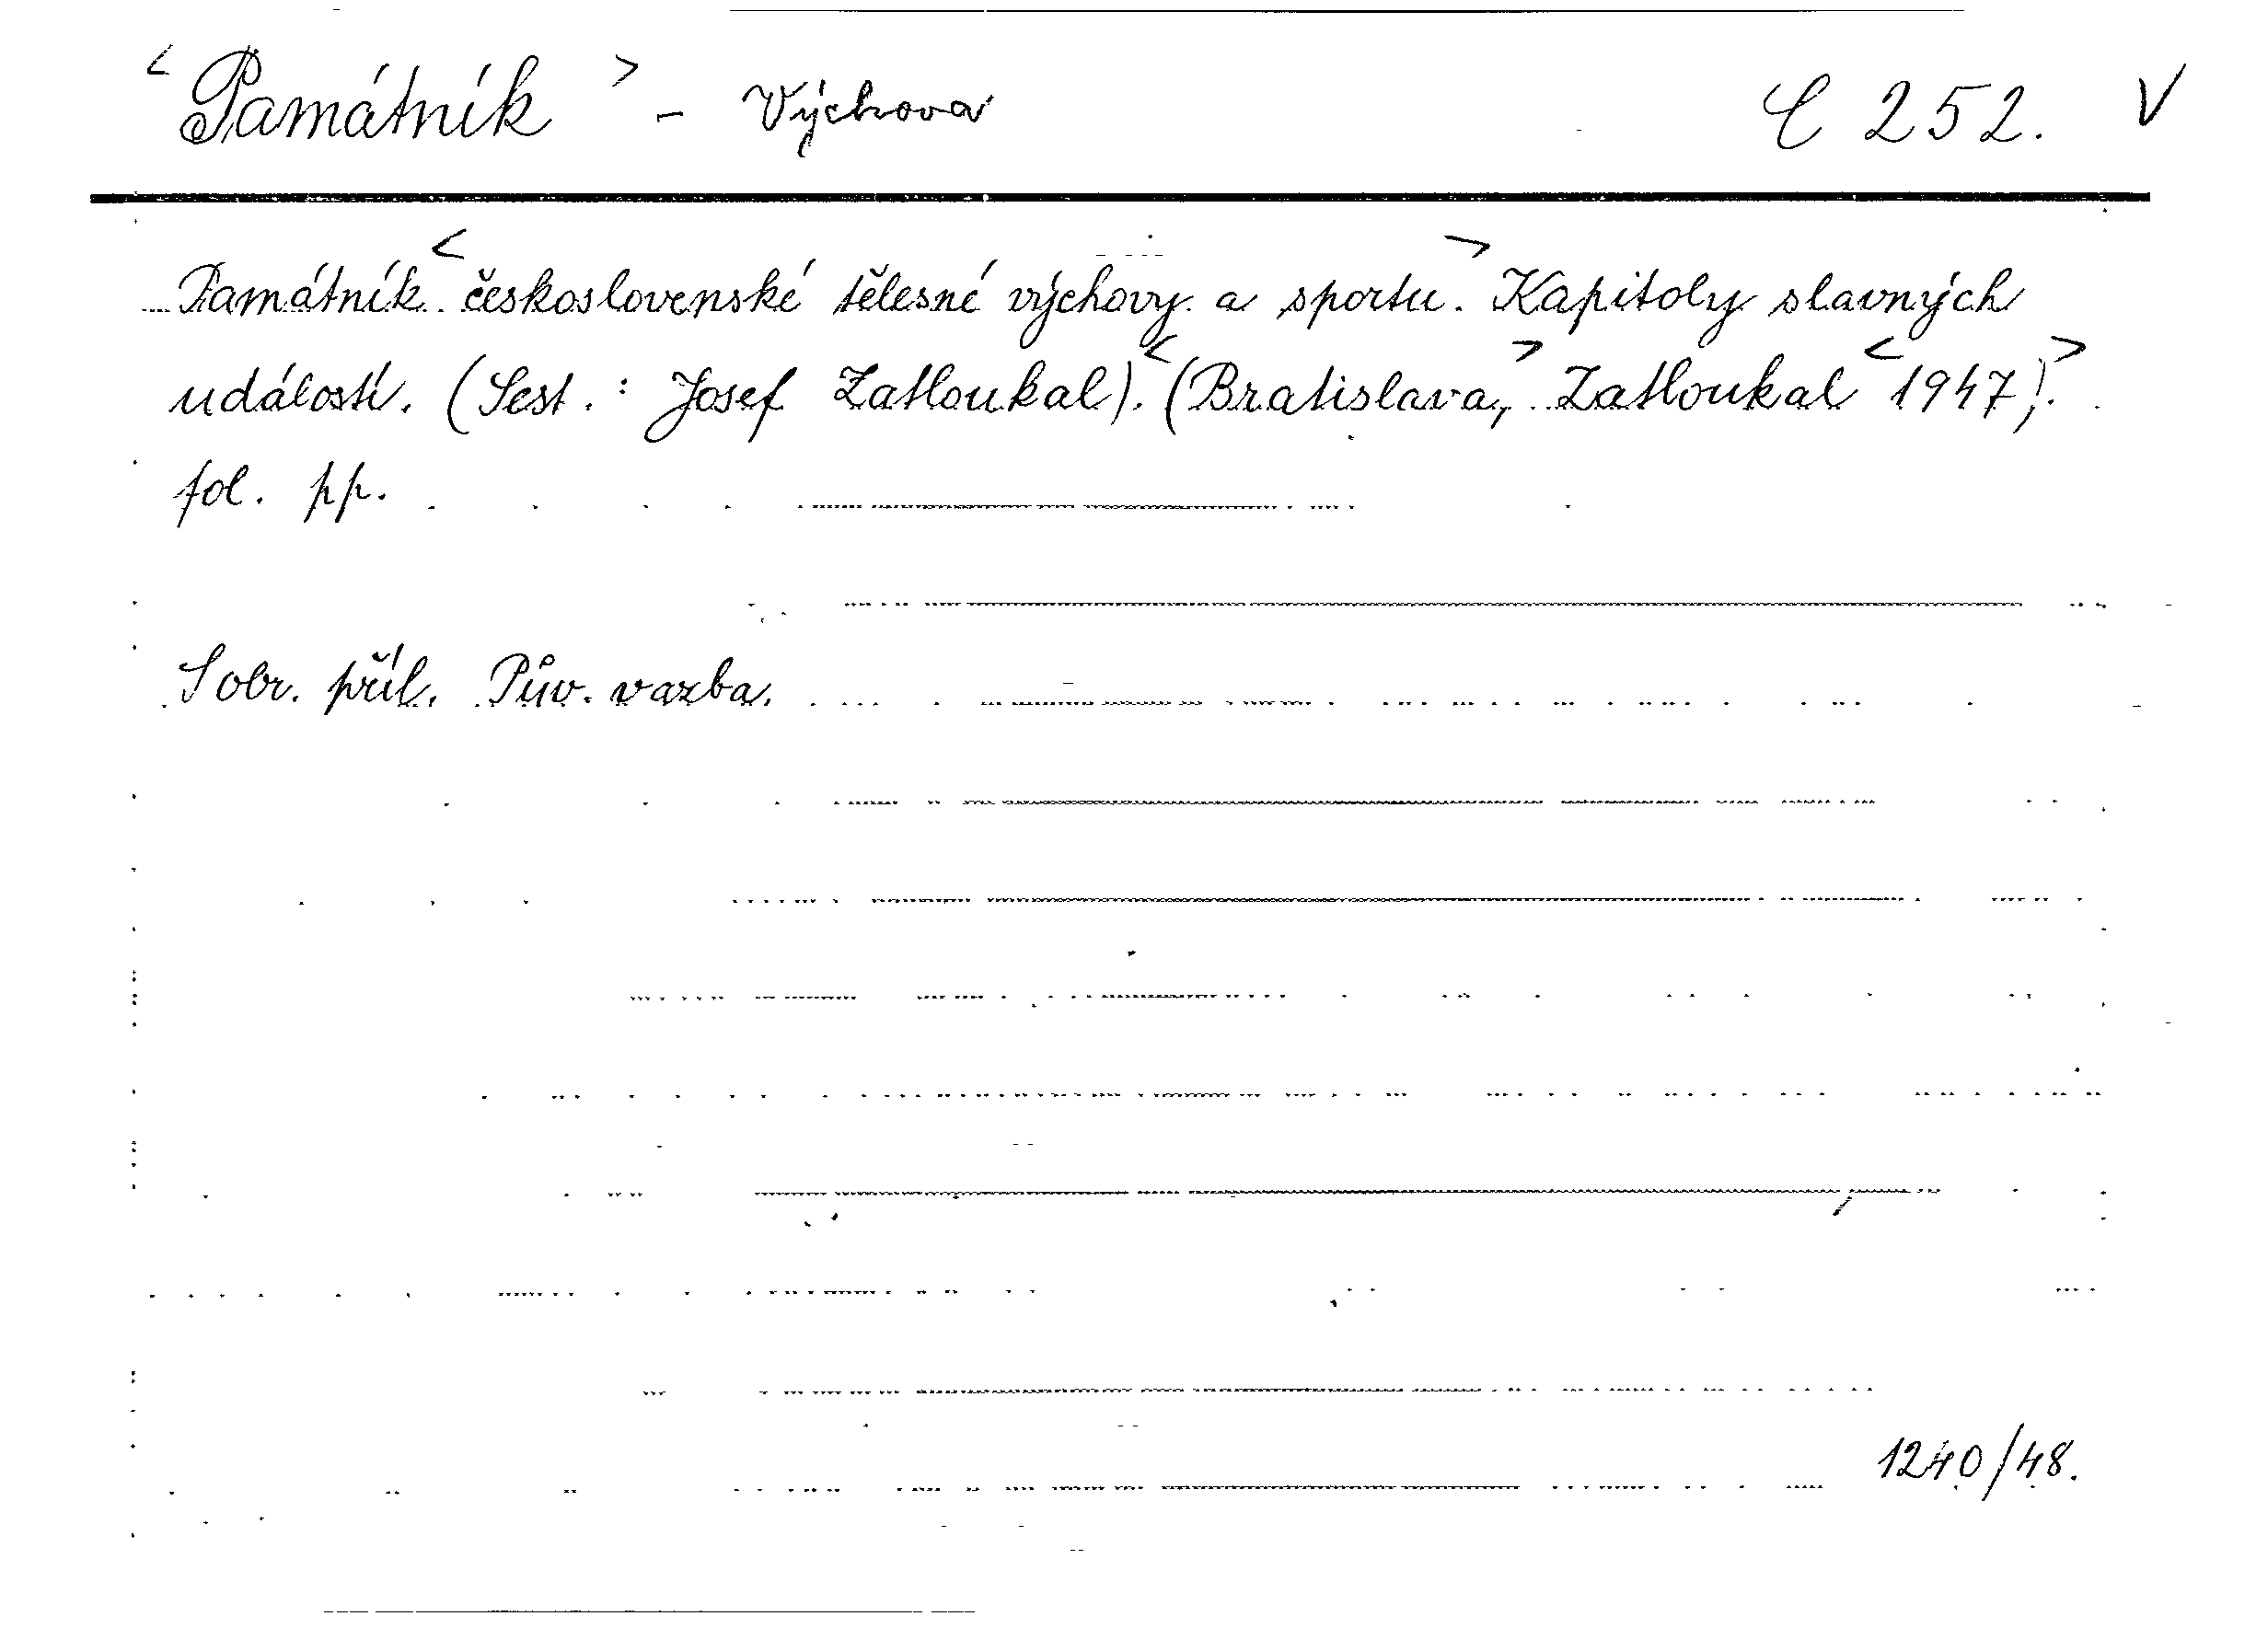 <Památník> - Výchova C 252. V
Památník <československé tělesné výchovy a sportu.> Kapitoly slavných
událostí. (Sest.: Josef Zatloukal). <(Bratislava,> Zatloukal <1947).>
fol. pp.
S obr. příl. Pův. vazba.
1240/48.